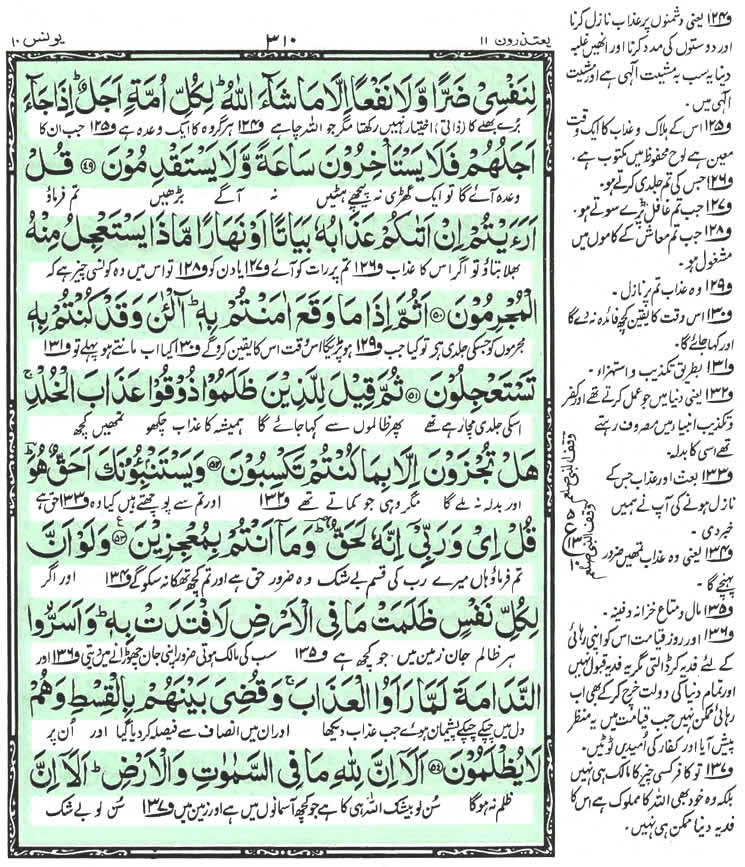 یعتذرون ۱۱
۳۱۰
یونس ۱۰
لِنَفْسِیْ ضَرًّا وَّلَا نَفْعًا اِلَّا مَا شَآءَ اللّٰهُ ؕ لِكُلِّ اُمَّةٍ اَجَلٌ ؕ اِذَا جَآءَ
برے بھلے کا (ذاتی) اختیار نہیں رکھتا مگر جو اللہ چاہے و۱۲۴ ہر گروہ کا ایک وعدہ ہے و۱۲۵ جب ان کا
اَجَلُهُمْ فَلَا یَسْتَاْخِرُوْنَ سَاعَةً وَّلَا یَسْتَقْدِمُوْنَ ﴿۴۹﴾ قُلْ
وعدہ آئے گا تو ایک گھڑی نہ پیچھے ہٹیں نہ آگے بڑھیں تم فرماؤ
اَرَءَیْتُمْ اِنْ اَتٰىكُمْ عَذَابُهٗ بَیَاتًا اَوْ نَهَارًا مَّاذَا یَسْتَعْجِلُ مِنْهُ
بھلا بتاؤ تو اگر اس کا عذاب و۱۲۶ تم پر رات کو آئے و۱۲۷ یا دن کو و۱۲۸ تو اس میں وہ کونسی چیز ہے کہ
الْمُجْرِمُوْنَ ﴿۵۰﴾ اَثُمَّ اِذَا مَا وَقَعَ اٰمَنْتُمْ بِهٖ ؕ آٰلْـٰٔنَ وَ قَدْ كُنْتُمْ بِهٖ
مجرموں کو جسکی جلدی ہی تو کیا جب و۱۲۹ ہو پڑیگا اس وقت اس کا یقین کرو گے و۱۳۰ کیا اب مانتے ہو پہلے تو و۱۳۱
تَسْتَعْجِلُوْنَ ﴿۵۱﴾ ثُمَّ قِیْلَ لِلَّذِیْنَ ظَلَمُوْا ذُوْقُوْا عَذَابَ الْخُلْدِ ۚ
اسکی جلدی مچا رہے تھے پھر ظالموں سے کہا جائے گا ہمیشہ کا عذاب چکھو تمھیں کچھ
هَلْ تُجْزَوْنَ اِلَّا بِمَا كُنْتُمْ تَكْسِبُوْنَ ﴿۵۲﴾ وَ یَسْتَنْۢبِـُٔوْنَكَ اَحَقٌّ هُوَ ؔؕ
اور بدلہ نہ ملے گا مگر وہی جو کماتے تھے و۱۳۲ اور تم سے پوچھتے ہیں کیا وہ و۱۳۳ حق ہے
قُلْ اِیْ وَ رَبِّیْۤ اِنَّهٗ لَحَقٌّ ؔؕ وَ مَاۤ اَنْتُمْ بِمُعْجِزِیْنَ ﴿۵۳﴾ وَ لَوْ اَنَّ
تم فرماؤ ہاں میرے رب کی قسم بے شک وہ ضرور حق ہے اور تم کچھ تھکا نہ سکو گے و۱۳۴ اور اگر
لِكُلِّ نَفْسٍ ظَلَمَتْ مَا فِی الْاَرْضِ لَافْتَدَتْ بِهٖ ؕ وَ اَسَرُّوا
ہر ظالم جان زمین میں جو کچھ ہے و۱۳۵ سب کی مالک ہوتی ضرور اپنی جان چھوڑانے میں دیتی و۱۳۶ اور
النَّدَامَةَ لَمَّا رَاَوُا الْعَذَابَ ۚ وَ قُضِیَ بَیْنَهُمْ بِالْقِسْطِ وَ هُمْ
دل میں چپکے چپکے پشیمان ہوئے جب عذاب دیکھا اور ان میں انصاف سے فیصلہ کر دیا گیا اور اُن پر
لَا یُظْلَمُوْنَ ﴿۵۴﴾ اَلَاۤ اِنَّ لِلّٰهِ مَا فِی السَّمٰوٰتِ وَ الْاَرْضِ ؕ اَلَاۤ اِنَّ
ظلم نہ ہوگا سُن لو بیشک اللہ ہی کا ہے جو کچھ آسمانوں میں ہے اور زمین میں و۱۳۷ سُن لو بے شک
و۱۲۴ یعنی دشمنوں پر عذاب نازل کرنا
اور دوستوں کی مدد کرنا اور انھیں غلبہ
دینا یہ سب بہ مشیت الٰہی ہے اور مشیت
الٰہی میں۔
و۱۲۵ اس کے ہلاک و عذاب کا ایک وقت
معین ہے لوح محفوظ میں مکتوب ہے۔
و۱۲۶ جس کی تم جلدی کرتے ہو۔
و۱۲۷ جب تم غافل پڑے سوتے ہو۔
و۱۲۸ جب تم معاش کے کاموں میں
مشغول ہو۔
و۱۲۹ وہ عذاب تم پر نازل۔
و۱۳۰ اس وقت کا یقین کچھ فائدہ نہ دے گا
اور کہا جائے گا۔
و۱۳۱ بطریق تکذیب و استہزاء۔
و۱۳۲ یعنی دنیا میں جو عمل کرتے تھے اور کفر
و تکذیب انبیا میں مصروف رہتے
تھے اسی کا بدلہ۔
و۱۳۳ بعث اور عذاب جس کے
نازل ہونے کی آپ نے ہمیں
خبر دی۔
و۱۳۴ یعنی وہ عذاب تمھیں ضرور
پہنچے گا۔
و۱۳۵ مال و متاع خزانہ و دفینہ۔
و۱۳۶ اور روز قیامت اس کو اپنی رہائی
کے لئے فدیہ کر ڈالتی مگر یہ فدیہ قبول نہیں
اور تمام دنیا کی دولت خرچ کر کے بھی اب
رہائی ممکن نہیں جب قیامت میں یہ منظر
پیش آیا اور کفار کی اُمیدیں ٹوٹیں۔
و۱۳۷ تو کافر کسی چیز کا مالک ہی نہیں
بلکہ وہ خود بھی اللہ کا مملوک ہے اس کا
فدیہ دینا ممکن ہی نہیں۔